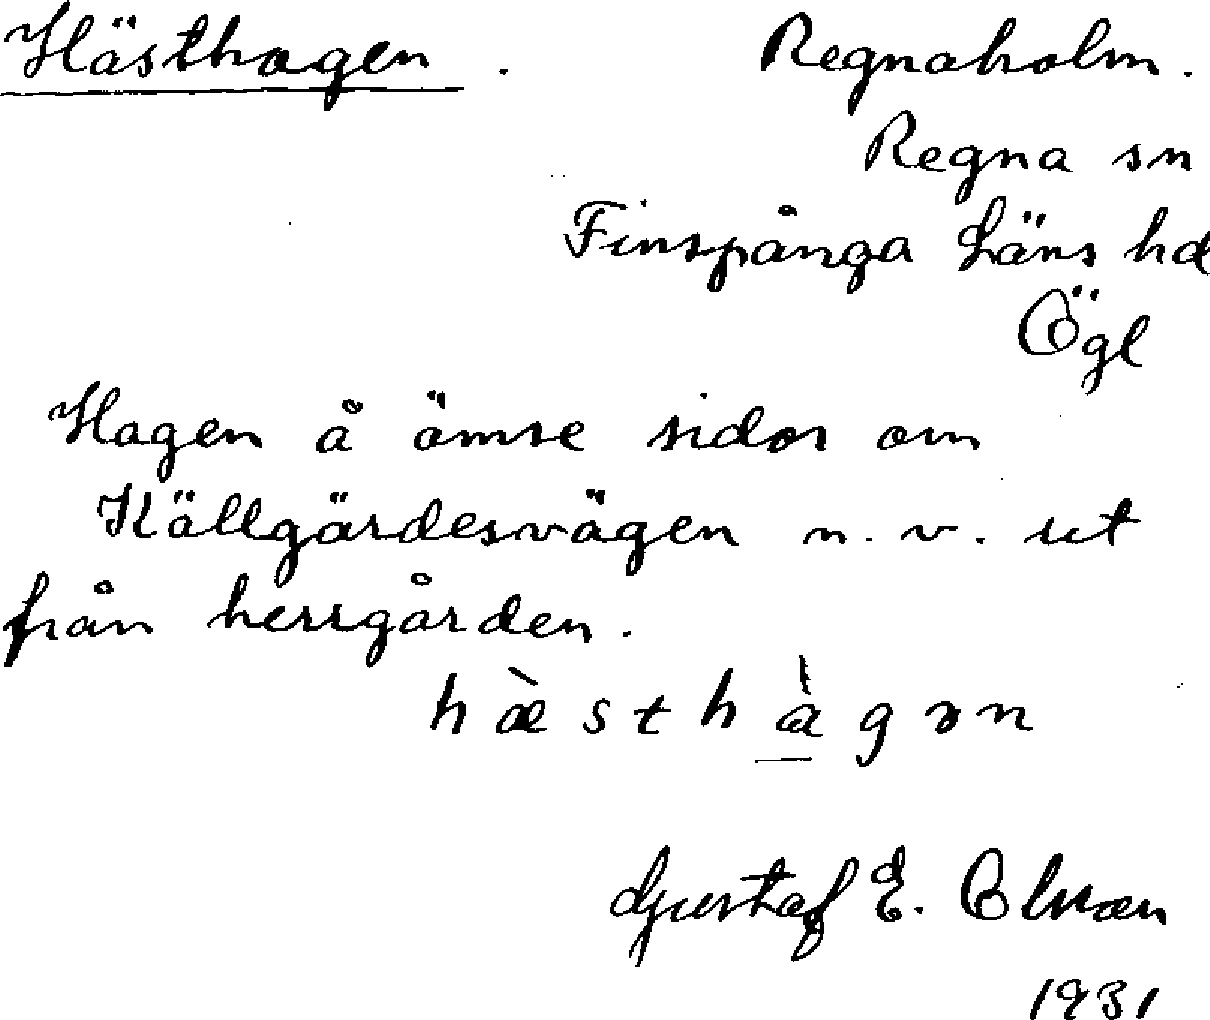 Hästhagen. Regnaholm.
Regna sn
Finspånga Läns hd
Ögl
Hagen å ömse sidor om
Källgärdesvägen n. v. ut
från herrgården.
hæ̀sthàgən
Gustaf E. Olsson
1931